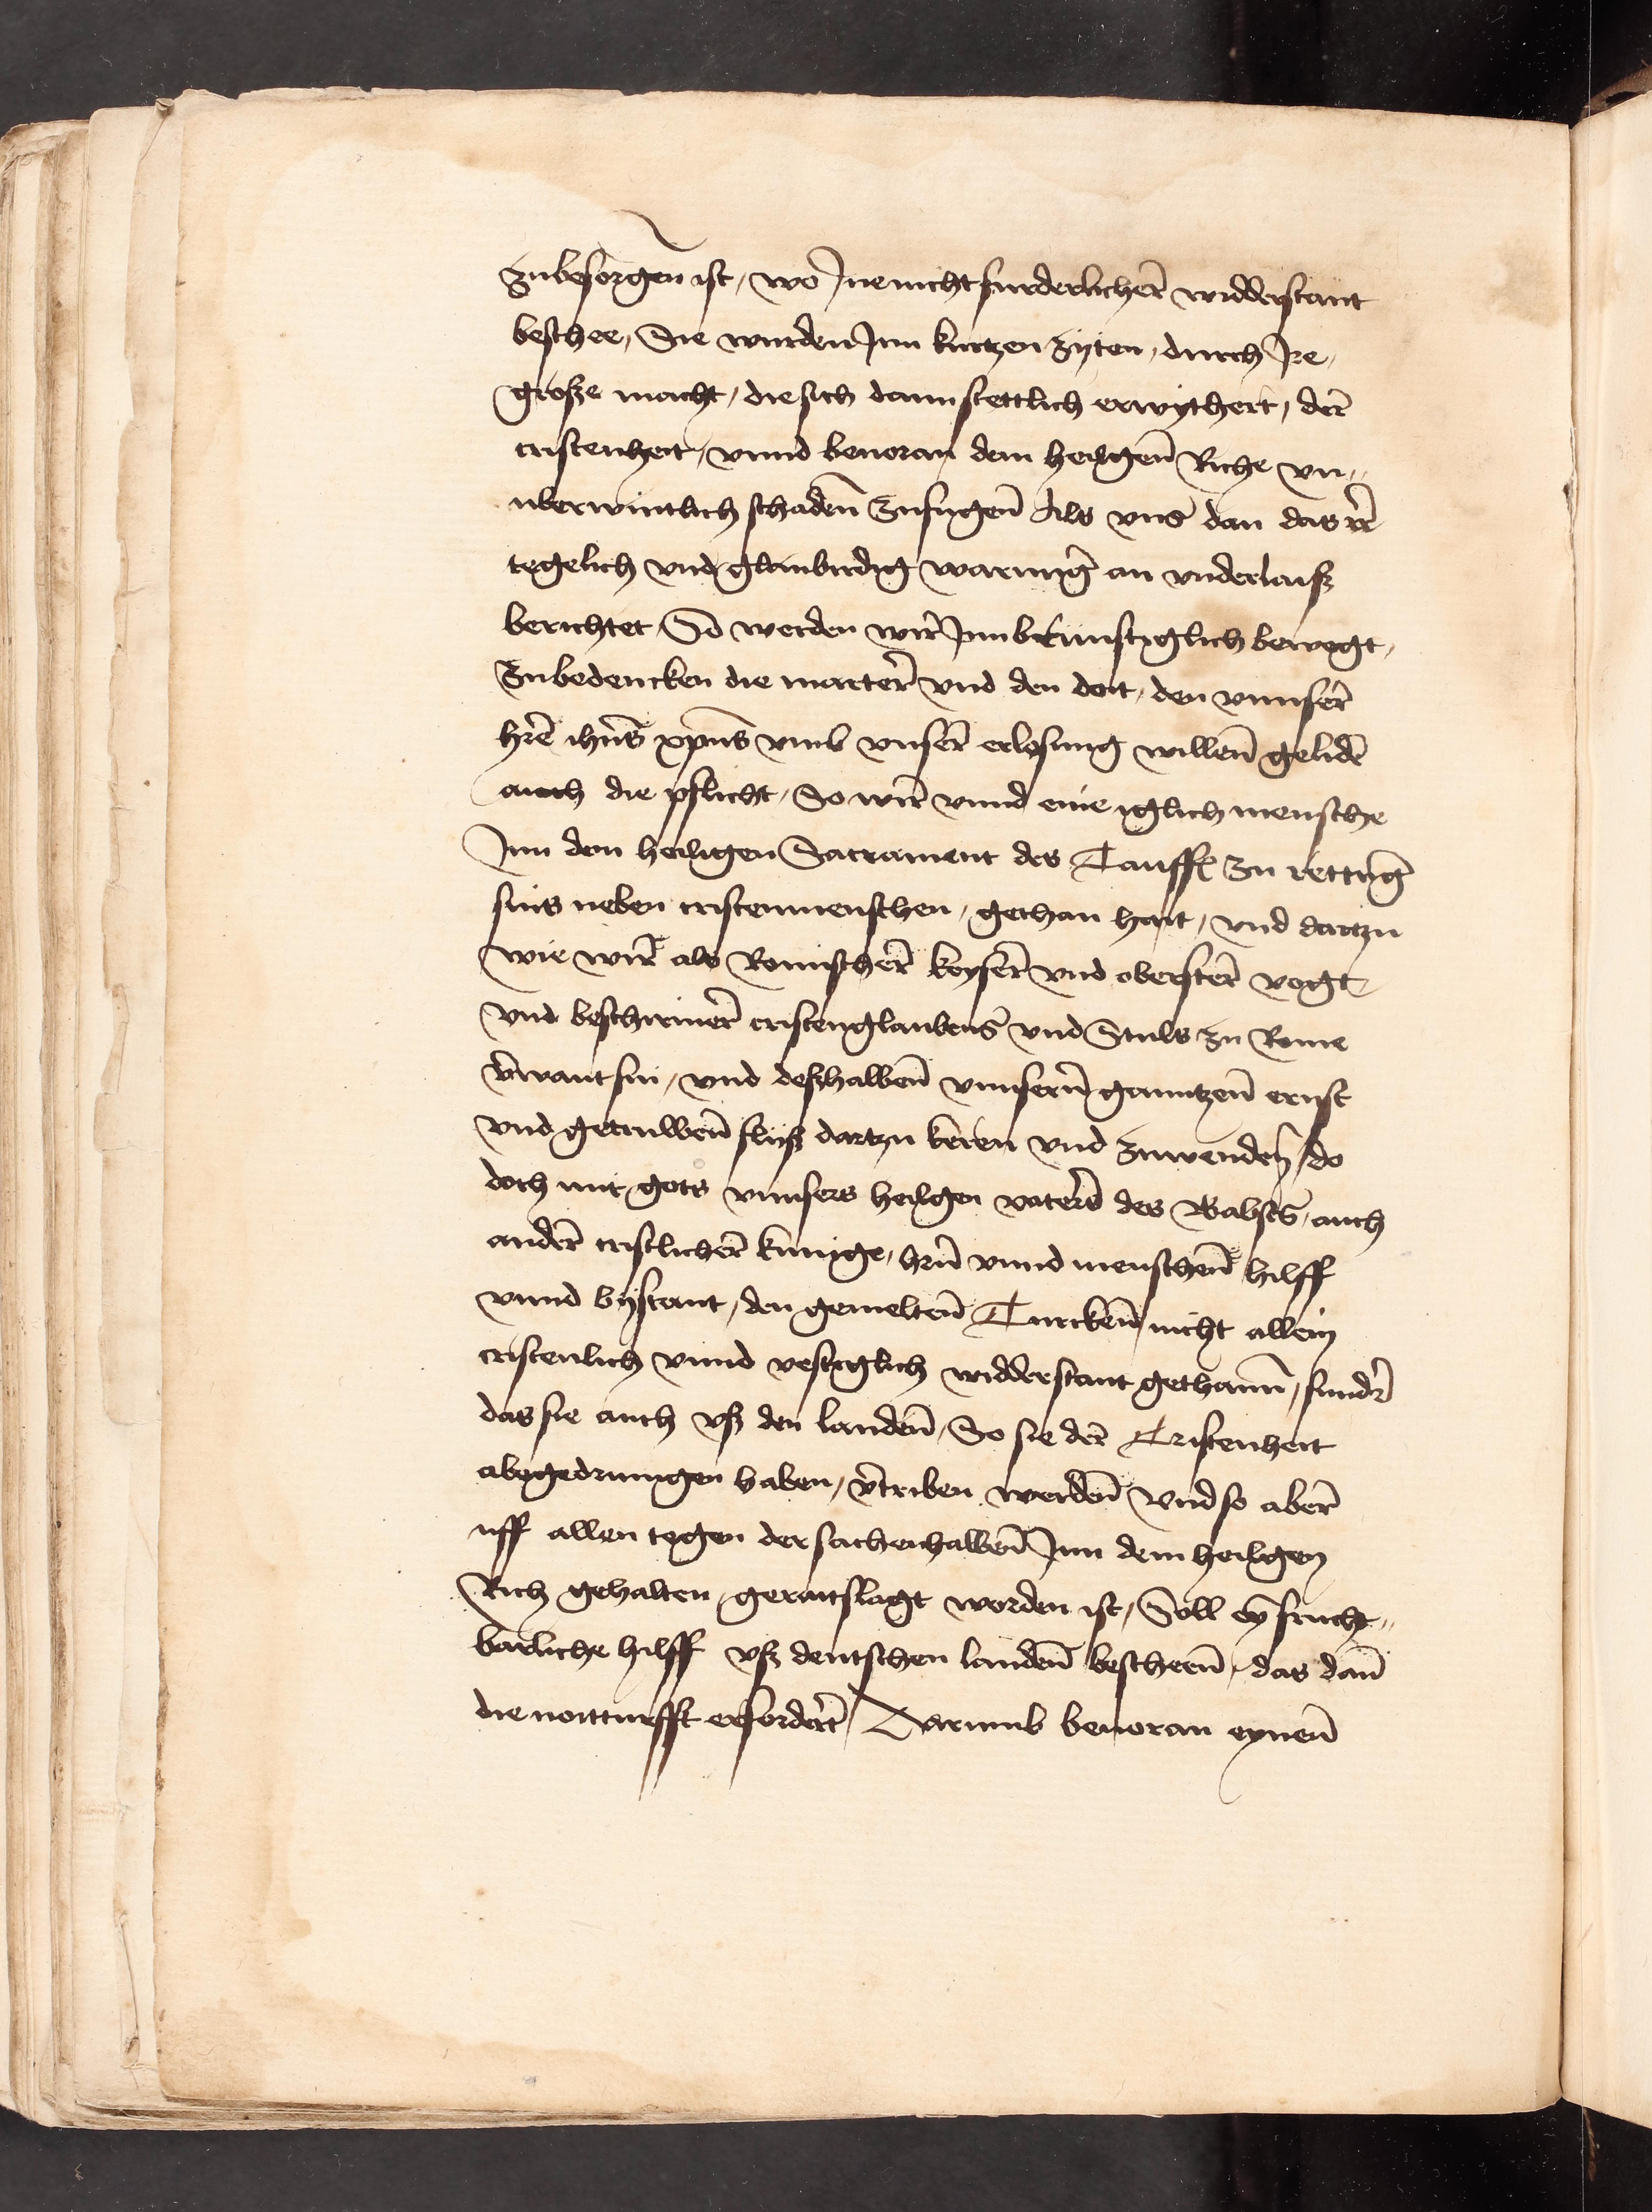 zubesorgen ist, wo Jne nicht furderlicher̄ widderstant
beschee, Sie wurden Jnn kurtzen zyten, durch Jre,
große macht, die sich dann stettlich erwythert, der̄
cristenheit, vnnd beuoran dem heilgen̄ Riche vn„
uberwintlich schaden̄ zufugen̄ Als vns dan das
tegelich vnd glaubwirdig warnu̅g an vnderlaiß
berichtet, So werden wir̄ Jnnbrunstiglich bewegt,
zubedencken die marter̄ vnd den doit, den vnnser̄
hr̄e ihūs xp̄us vmb vnser̄ erlosung willen̄ gelide̅
auch die pflicht, So wir̄ vnnd eine iglich mensche
Jnn dem heiligen Sacrament des Tauffs zu rettu̅g
sins neben cristenmenschen, gethan hait, vnd dartzu
wie wir̄ als Romischer̄ keyser̄ vnd oberster̄ vogt
vnd beschirmer̄ cristenglaubens vnd Stuls zu Rome
v̄want sin, vnd deßhalben̄ vnnsern̄ ganntzen̄ ernst
vnd getruwen̄ fliß dartzu keren vnd zuwenden, do
doch mit gots vnnsers heilgen vaters des Babsts, auch
ander̄ cristlicher̄ kunige, hrn̄ vnnd menschen̄ hilff
vnnd bystant, den gemelten̄ Turcken̄ nicht allein
cristenlich vnnd vestiglich widderstant gethann, sunder̄
das sie auch vß den landen̄, So sie der̄ Cristenheit
abegedrungen haben, v̄triben werden̄ Vnd so aber̄
uff allen tegen der sachenhalben̄ Jnn dem heilgen
Rich gehalten, geraitslagt worden ist, Soll ey̅ frucht„
barliche hilff vß deutschen landen̄ bescheen̄, das dan̄
die noitturfft erfordert, Darumb beuoran eynen̄